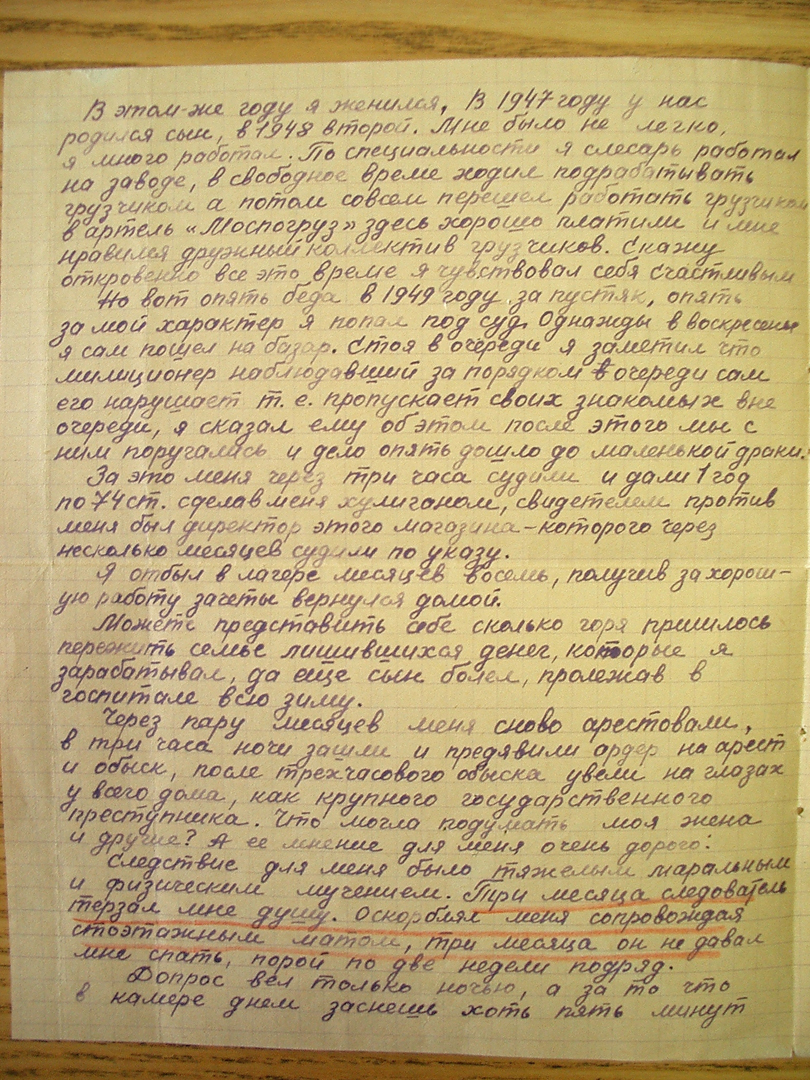 В этом-же году я женился, В 1947 году у нас
родился сын, в 1948 второй. Мне было не легко,
я много работал. По специальности я слесарь работал
на заводе, в свободное време ходил подрабатывать
грузчиком а потом совсем перешел работать грузчиком
в артель «Моспогруз» здесь хорошо платили и мне
нравился дружный коллектив грузчиков. Скажу
откровенно все это време я чувствовал себя счастливым
Но вот опять беда в 1949 году за пустяк, опять
за мой характер я попал под суд. Однажды в воскресенье
я сам пошел на базар. Стоя в очереди я заметил что
милиционер наблюдавший за порядком в очереди сам
его нарушает т.е. пропускает своих знакомых вне
очереди, я сказал ему об этом после этого мы с
ним поругалась и дело опять дошло до маленькой драки.
За это меня через три часа судили и дали 1 год
по 74 ст. сделав меня хулиганом, свидетелем против
меня был директор этого магазина – которого через
несколько месяцев судили по указу.
Я отбыл в лагере месяцев восемь, получив за хорош-
ую работу зачеты вернулся домой.
Можете представить себе сколько горя пришлось
пережить семье лишившихся денег, которые я
зарабатывал, да еще сын болел, пролежав в
госпитале всю зиму.
Через пару месяцев меня сново арестовали,
в три часа ночи зашли и предявили ордер на арест
и обыск, после трехчасового обыска увели на глазах
у всего дома, как крупного государственного
преступника. Что могла подумать моя жена
и другие? А ее мнение для меня очень дорого!
Следствие для меня было тяжелым маральным
и физическим мучением. Три месяца следователь
терзал мне душу. Оскорблял меня сопровождая
стоэтажным матом, три месяца он не давал
мне спать, порой по две недели подряд.
Допрос вел только ночью, а за то что
в камере днем заснешь хоть пять минут